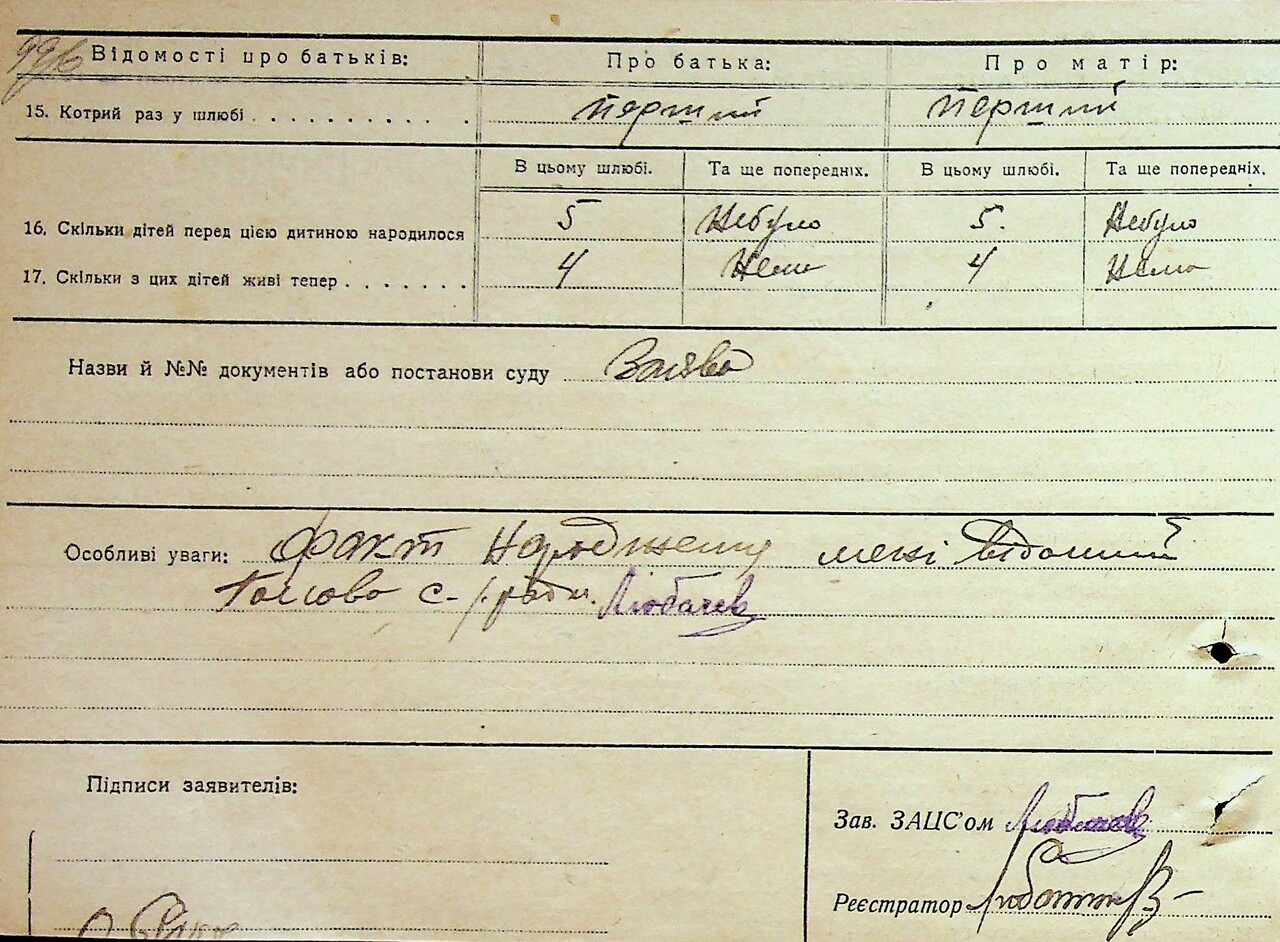 996
Відомості про батьків: Про батька: Про матір:
15. Котрий раз у шлюбі . . . . . . . . . . . перший перший
В цьому шлюбі. Та ще попередніх. В цьому шлюбі. Та ще попередніх.
16. Скільки дітей перед цією дитиною народилося 5 Небуло 5. Небуло
17. Скільки з цих дітей живі тепер . . . . . . . 4 Нема 4 Нема
Назви й №№ документів або постанови суду Заява
Особливі уваги: Факт Народження мені відомий
Голова с-/ради. Любачев
Підписи заявителів:
Зав. ЗАЦС'ом Любачев
Реєстратор